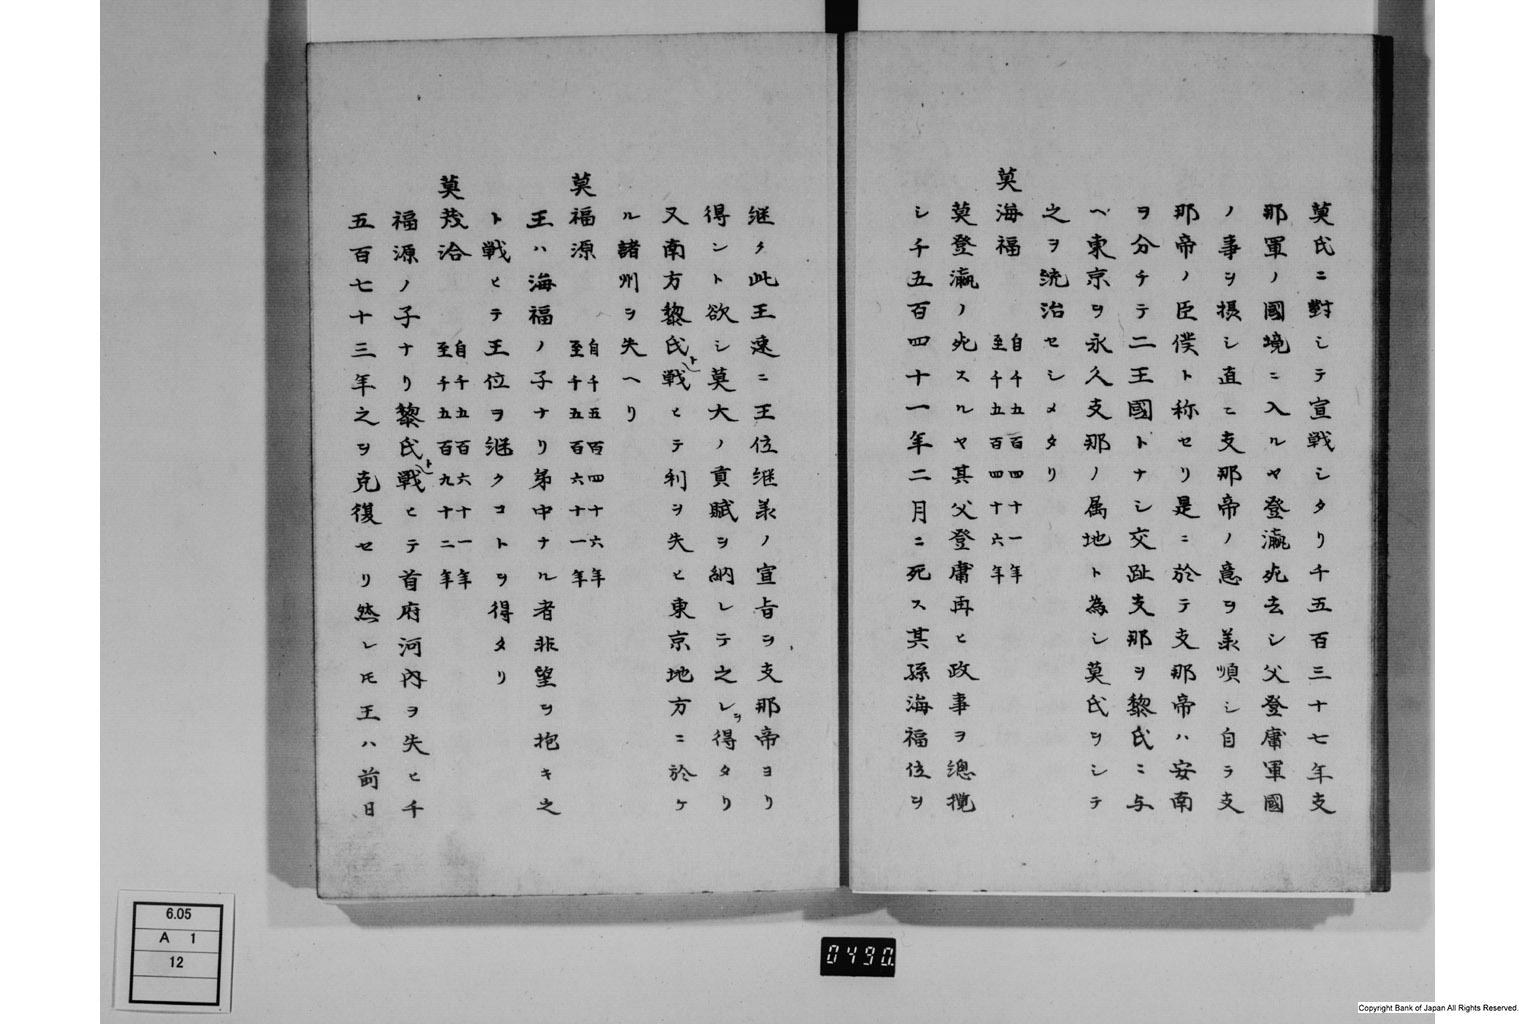 莫氏ニ對シテ宣戦シタリ千五百三十七年支
那軍ノ國境ニ入ルヤ登瀛死去シ父登庸軍國
ノ事ヲ摂シ直ニ支那帝ノ意ヲ承順シ自ラ支
那帝ノ臣僕ト称セリ是ニ於テ支那帝ハ安南
ヲ分チテ二王國トナシ交趾支那ヲ黎氏ニ与
ヘ東京ヲ永久支那ノ属地ト為シ莫氏ヲシテ
之ヲ統治セシメタリ
莫海福 自千五百四十一年
至千五百四十六年
莫登瀛ノ死スルヤ其父登庸再ヒ政事ヲ總攬
シ千五百四十一年二月ニ死ス其孫海福位ヲ
継ク此王速ニ王位継承ノ宣旨ヲ支那帝ヨリ
得ント欲シ莫大ノ貢賦ヲ納レテ之レヲ得タリ
又南方黎氏ト戦ヒテ利ヲ失ヒ東京地方ニ於ケ
ル諸州ヲ失ヘリ
莫福源 自千五百四十六年
至千五百六十一年
王ハ海福ノ子ナリ弟中ナル者非望ヲ抱キ之
ト戦ヒテ王位ヲ継クコトヲ得タリ
莫茂洽 自千五百六十一年
至千五百九十二年
福源ノ子ナリ黎氏ト戰ヒテ首府河内ヲ失ヒ千
五百七十三年之ヲ克復セリ然レ𪜈王ハ前日
6.05
A 1
12
0490
Copyright Bank of Japan All Rights Reserved.